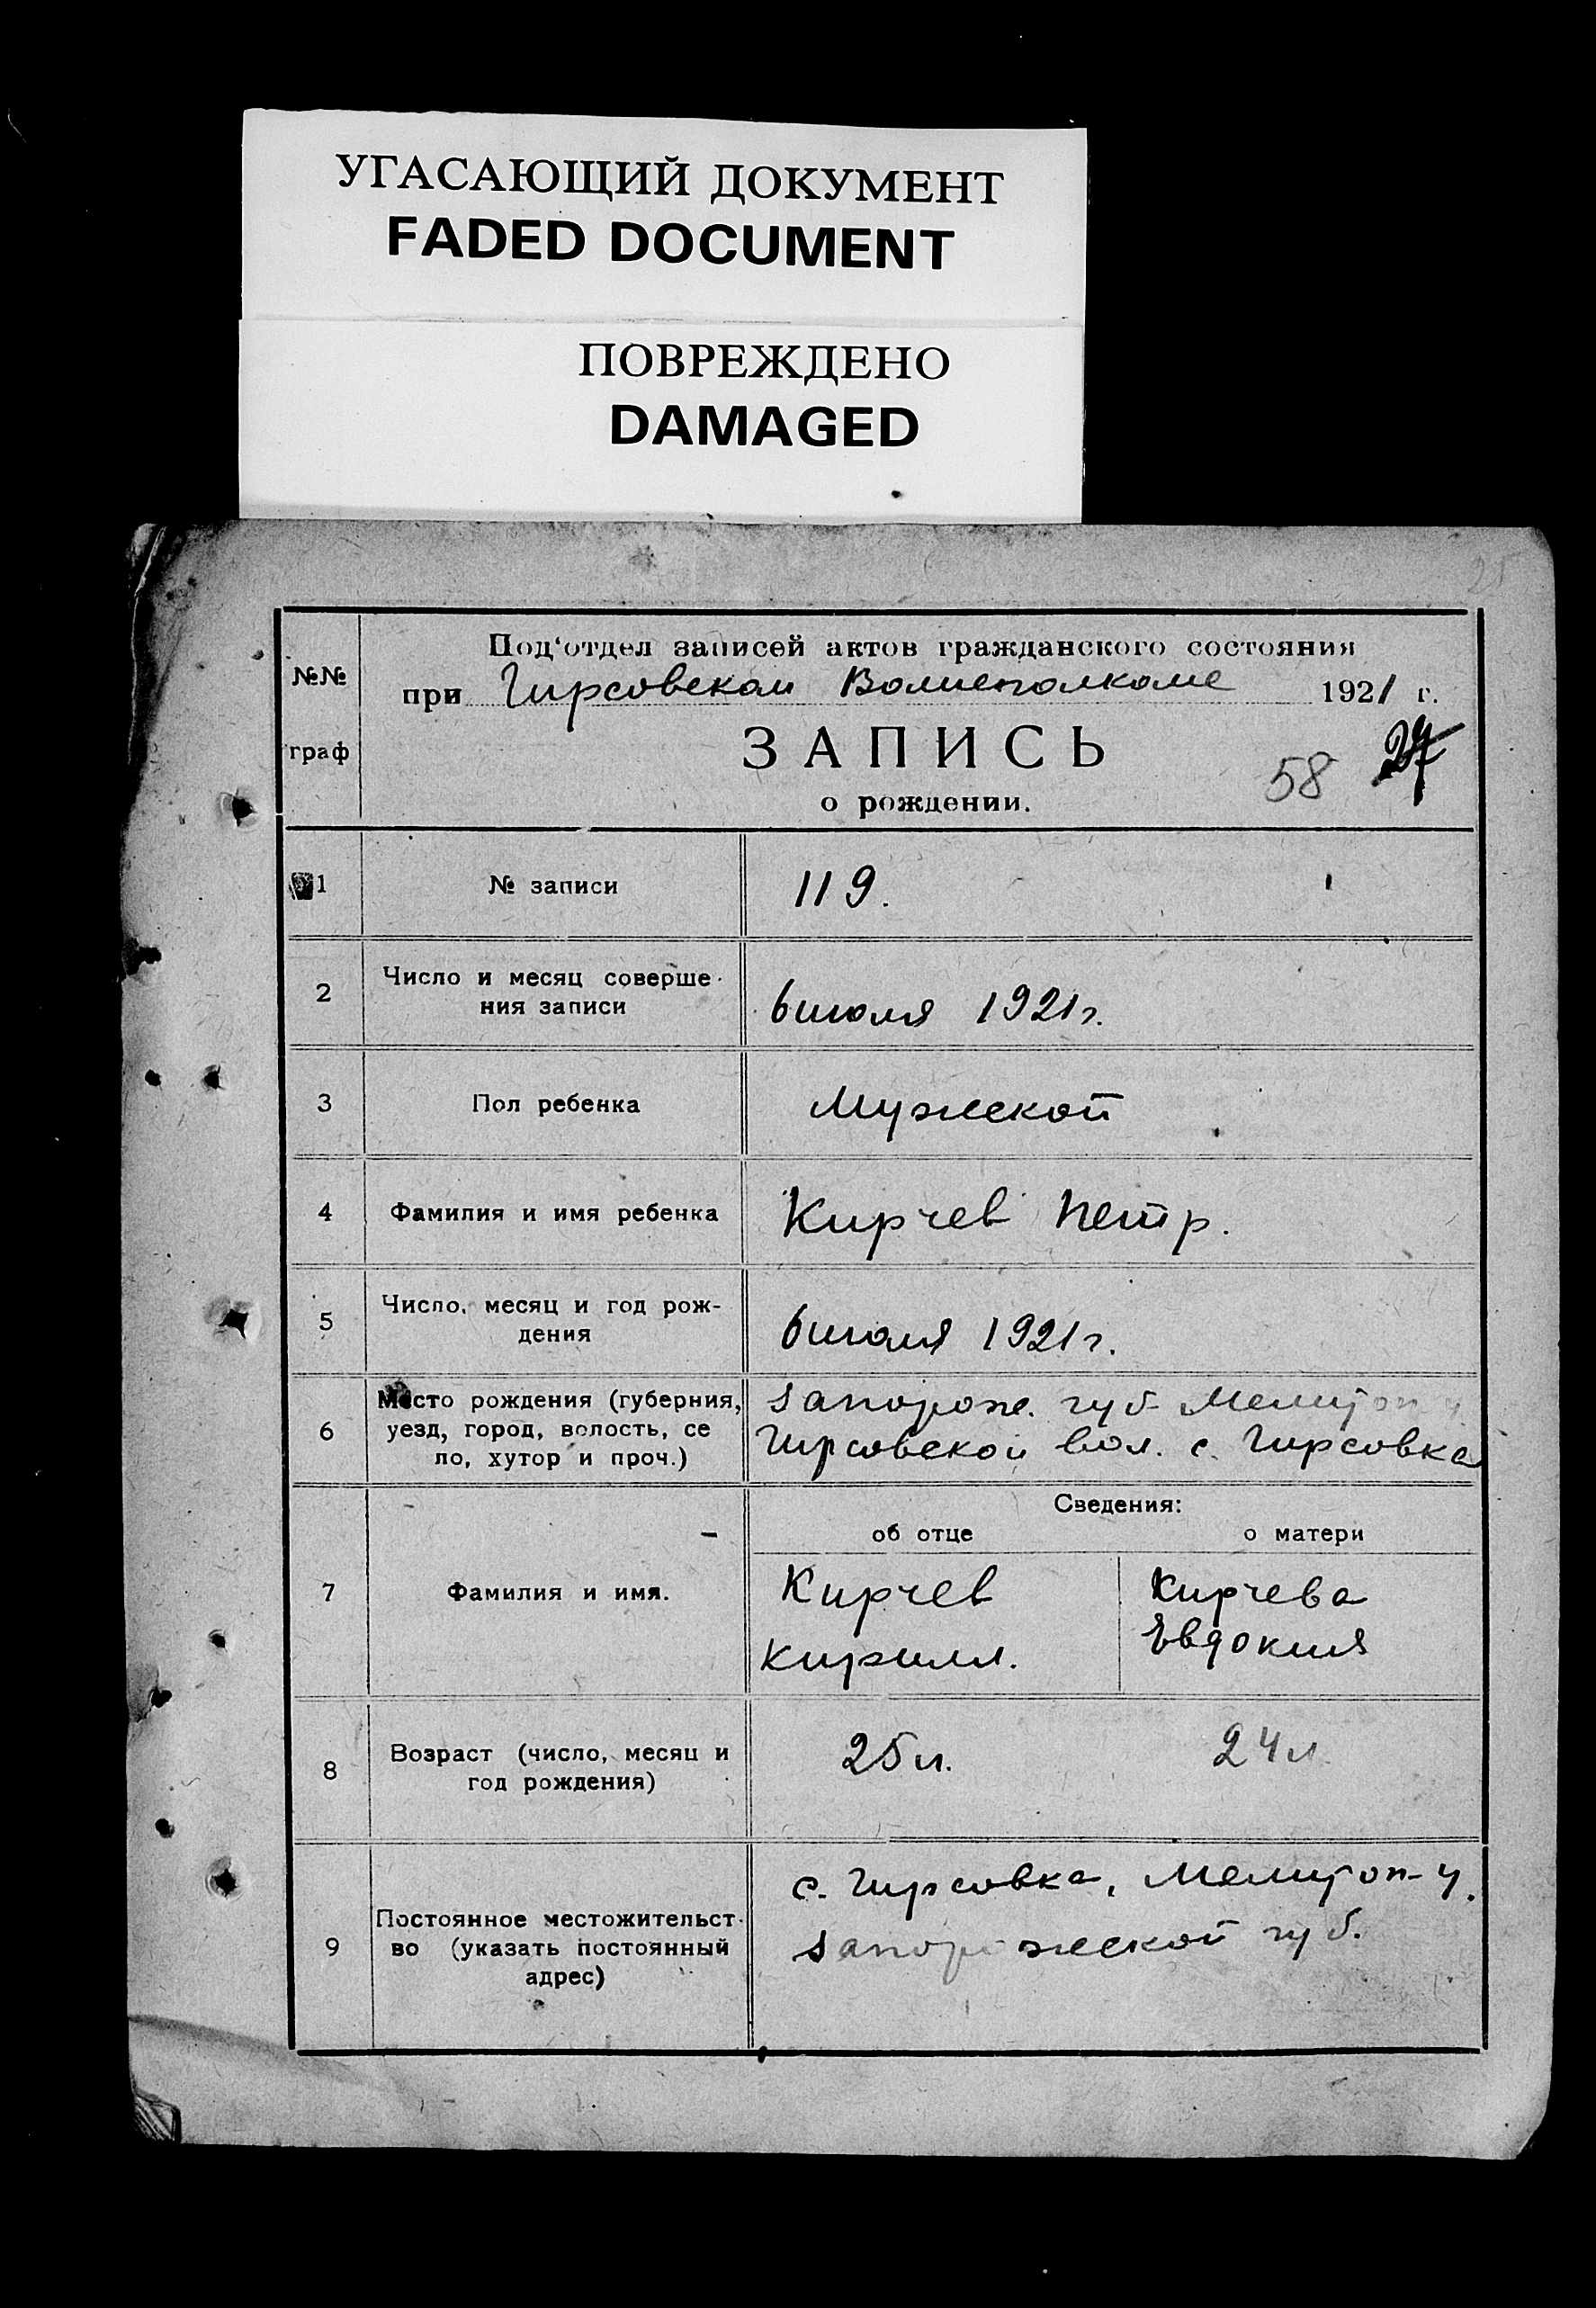 УГАСАЮЩИЙ ДОКУМЕНТ
FADED DOCUMENT
ПОВРЕЖДЕНО
DAMAGED
25
№№ граф
Под‘отдел записей актов гражданского состояния
при Гирсовском Волисполкоме 1921 г.
ЗАПИСЬ
58 27
о рождении.
1 № записи 119.
2 Число и месяц соверше-
ния записи 6 июля 1921 г.
3 Пол ребенка Мужской
4 Фамилия и имя ребенка Кирчев Петр.
5 Число, месяц и год рож-
дения 6 июля 1921 г.
6 Место рождения (губерния,
уезд, город, волость, се
ло, хутор и проч.)
Запорож. губ Мелитоп у
Гирсовской вол. с. Гирсовка
Сведения:
об отце о матери
7 Фамилия и имя.
Кирчев Кирчева
Кирилл. Евдокия
8 Возраст (число, месяц и
год рождения)
25 л. 24 л.
9 Постоянное местожительст-
во (указать постоянный
адрес)
с. Гирсовка, Мелитоп-у.
Запорожской губ.